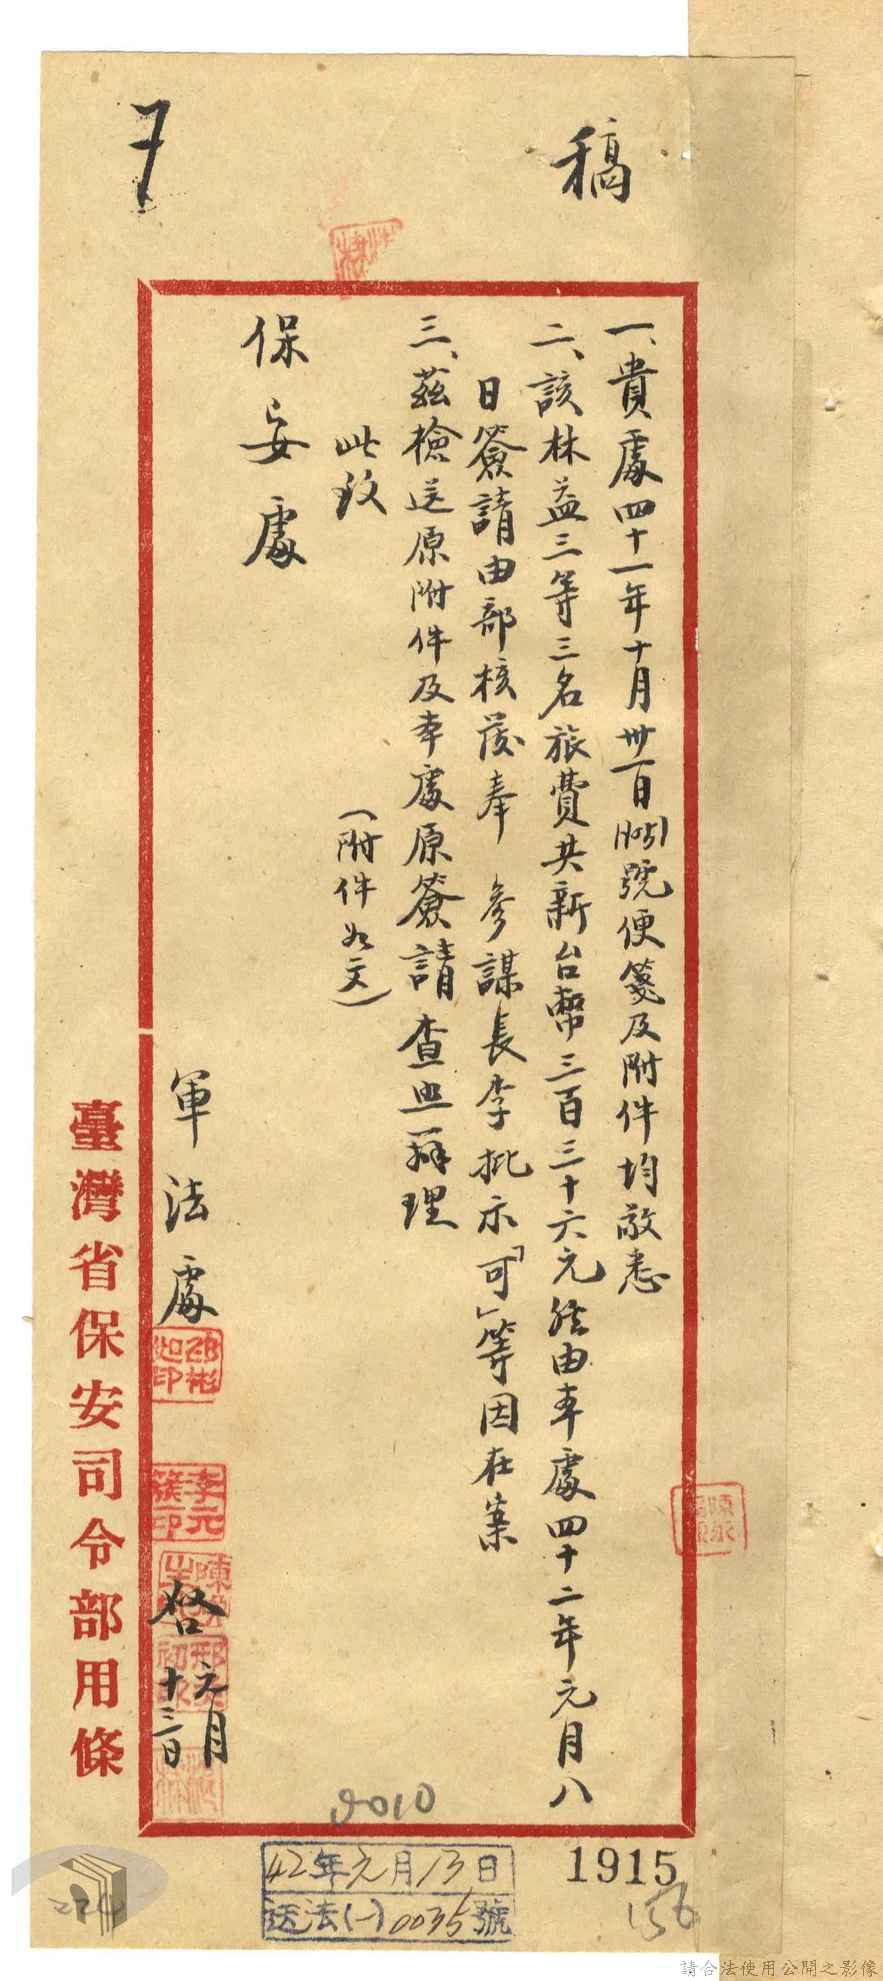 稿
一、貴處四十一年十月卅一日1051號便箋及附件均敬悉
二、該林益三等三名旅費共新台幣三百三十六元經由本處四十二年元月八
日簽請由部核發奉 參謀長李批示「可」等因在案
三、茲檢送原附件及本處原簽請查照辦理
此致
(附件如文)
保安處
軍法處
啓
元月
十三日
臺灣省保安司令部用條
42年元月13日
送法(一)0035號
1915
156
224
請合法使用公開之影像